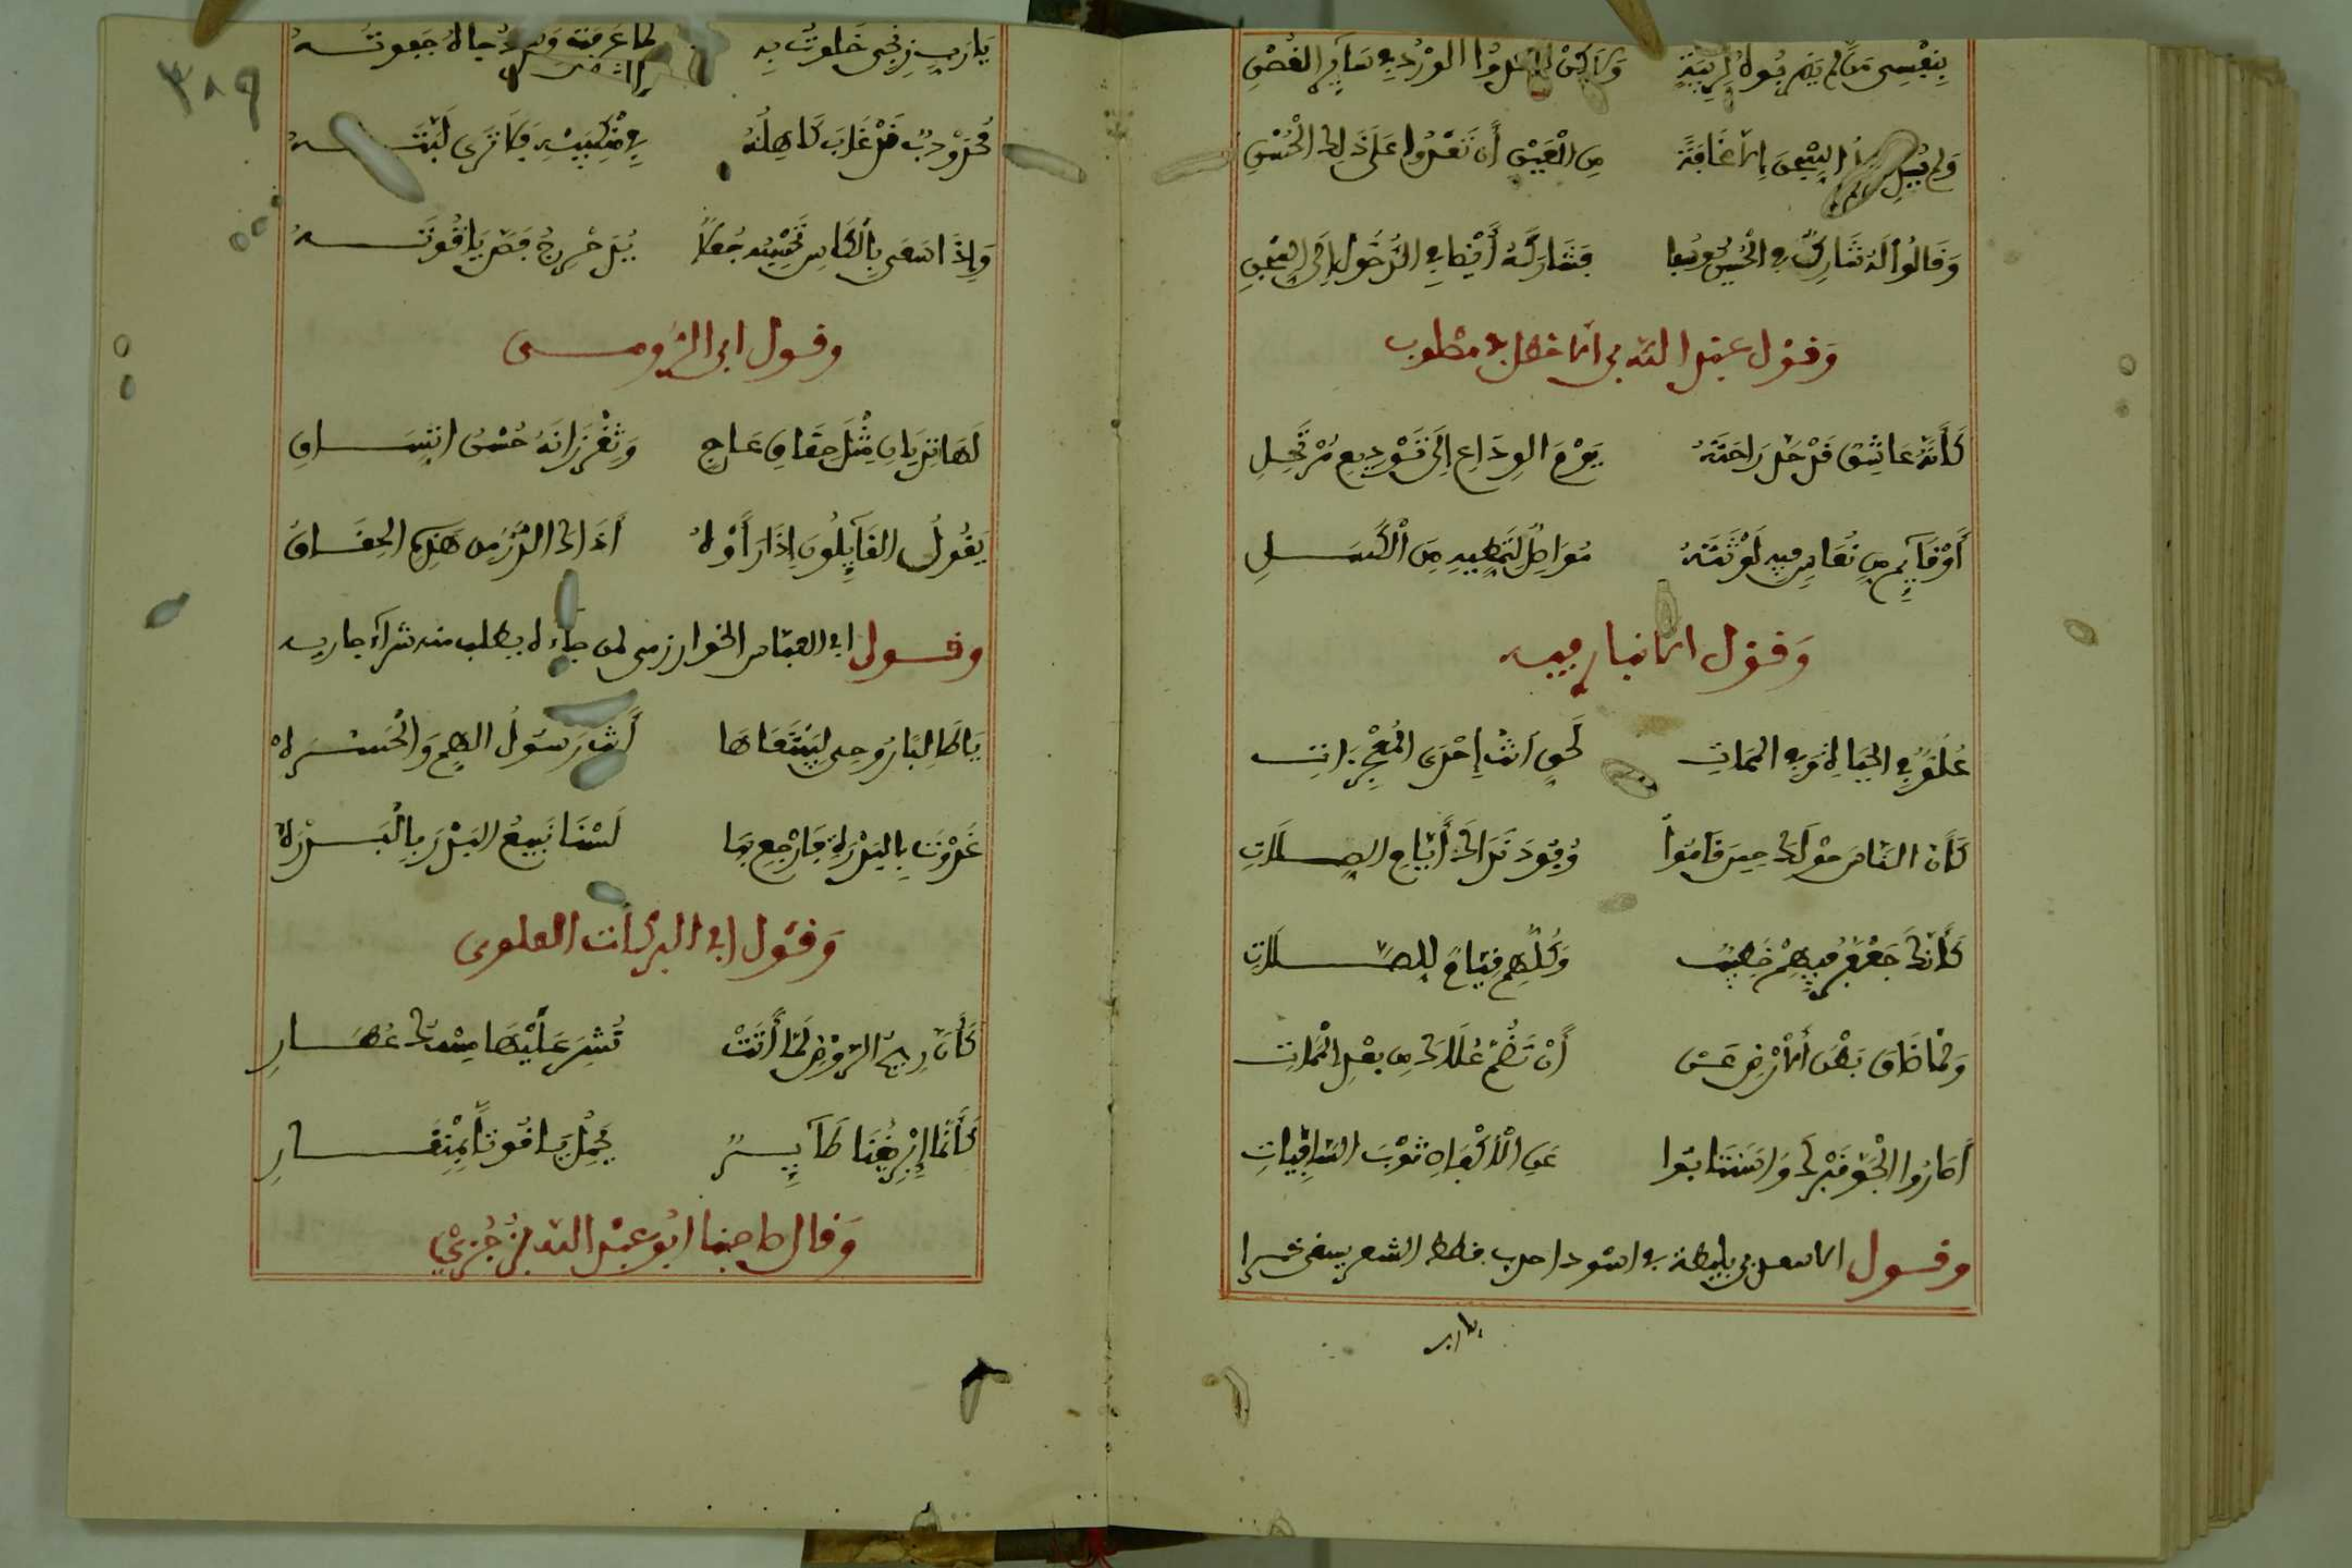 بنفسي من لم يضربوه لريبة ولاكن ليبدوا الورد في سائر الغصن
ولم السجن إلا مخافة من العين أن تعدوا على ذلك الحسن
وقالوا له شاركت في الحسن يوسفا فشاركه أيضا في الدخول إلى السجن
وقول عبد الله بن الافضل في مصلوب
كأنه عاشق قد مد راحته يوم الوداع إلى توديع مرتحل
أو قايم من نعاس فيه لوثته مواصل لتمطيه من الكسل
وقول الانبار فيه
علو في الحياة وفي الممات لحق أنت إحدى المعجزات
كأن الناس حولك حين قاموا وفود نداك أيام الصلات
كأنك جعفر فيهم خطيب وكلهم قيام للصلات
ولما ضاق بطن الأرض عن أن تضم علاك من بعد الممات
أصاروا الجو قبرك واستنابوا عن الأكفان ثوب السافيات
وقول الاسعد بن بليطة في اسود احدب فطط الشعر يسقي خمرا
يارب
٣٨٩
يارب زنجي خلوت به جاله جعودته
محدودب قد غاب كاهله في منكبيه فلا ترى ليته
وإذا سعى بالكاس تحسبه جعلا يدحرج فص ياقوته
وقول ابن الرومي
لها ثديان مثل حقاق عاج وثغر زانه حسن اتساق
يقول القايلون إذا رأوه أذاك الدر من هذه الحقاق
وقول ابي العباس الخوارزمي لمن جاءه يطلب منه شراء جاريه
يا طالبا روحي ليبتاعها أنت رسول الهم والحسره
غدوت بالبدرة فارجع بها لسنا نبيع البدر بالبدره
وقول ابي البركات العلوي
كأن ريح الروض لما أتت تنشر علينا مسك عطار
كأنما إبريقنا طاير يحمل ياقوتا بمنقار
وقال صاحبنا ابو عبد الله بن جزي